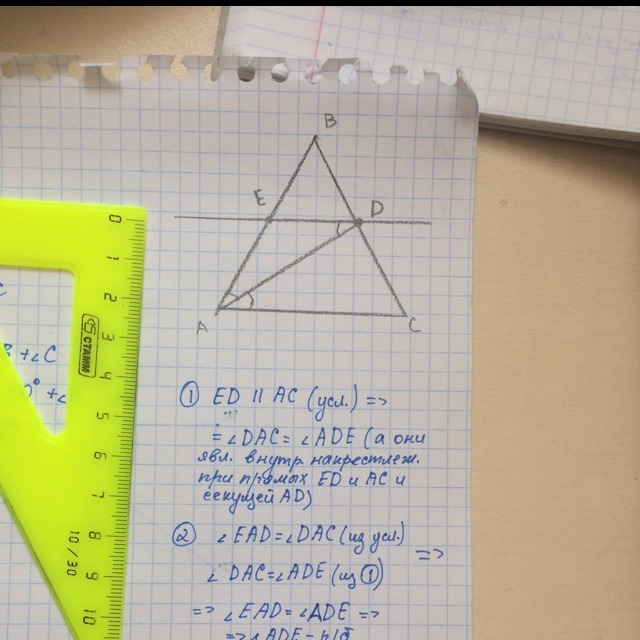 B
E
D
A
C
① ED || AC (усл.) =>
= ∠DAC = ∠ADE (а они
явл. внутр. накрестлеж.
при прямых ED и AC и
секущей AD)
② ∠EAD = ∠DAC (из усл.)
=>
∠DAC = ∠ADE (из ①)
=> ∠EAD = ∠ADE =>
=> ∠ADE - р/б
C
B + ∠C
0° + ∠
0
1
2
3
4
5
6
7
8
9
10
СТАММ
10/30